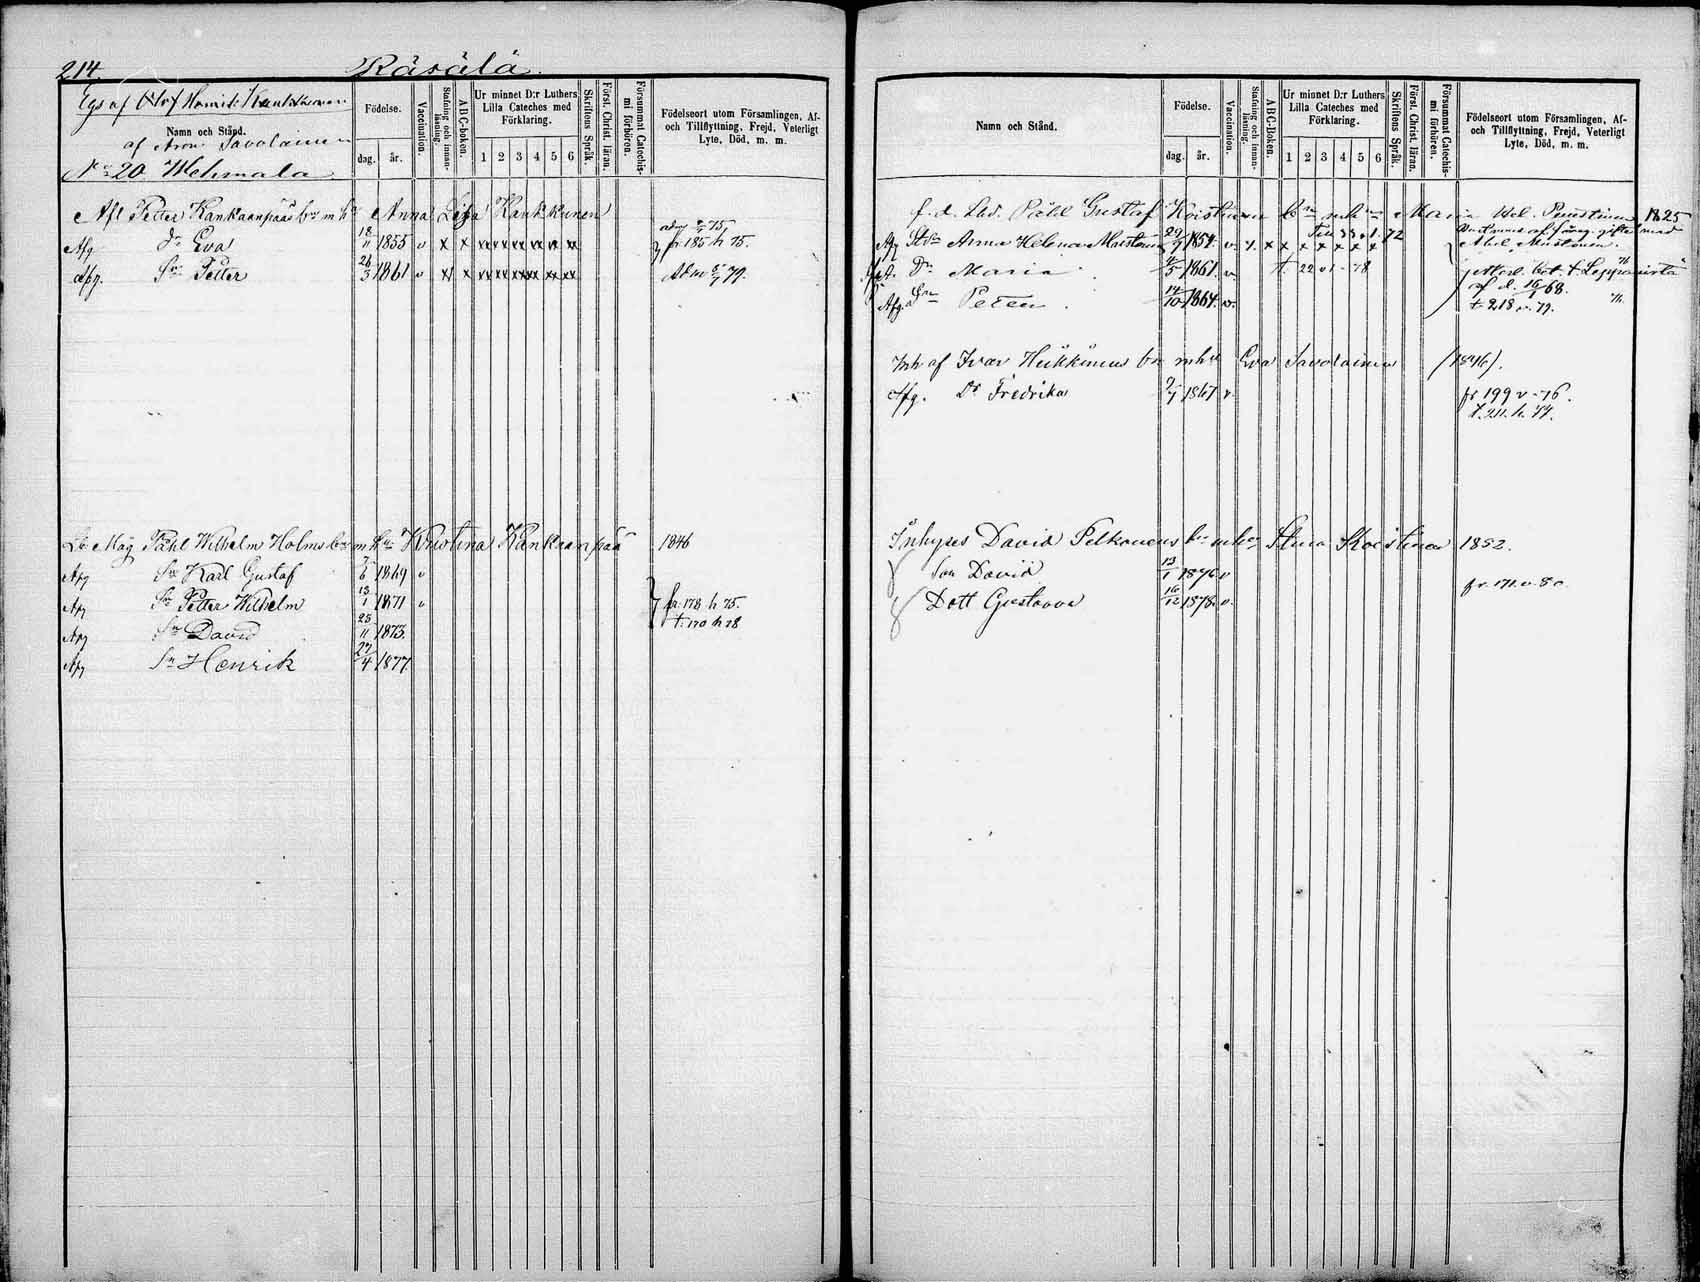 214.
Räsälä.
Egs af Olof Henrik Kankkunen
Namn och Stånd.
af Aron Savolainen
No 20 Wehmala
Födelse.
dag. år.
Vaccination.
Stafning och innan-läsning.
ABC-boken.
Ur minnet D:r Luthers Lilla Cateches med Förklaring.
1 2 3 4 5 6
Skriftens Språk.
Först. Christ. läran.
Försummat Catechis-mi förhören.
Födelseort utom Församlingen, Af-
och Tillflyttning, Frejd, Veterligt
Lyte, Död, m. m.
Afl Petter Kankaanpääs bn m hu Anna Lisa Kankkunen
Afg Dr Eva 18/11 1855 v x x xx xx xx xx xx xx fr 185 h 75.
Afg. Sn Petter 26/3 1861 v x x xx xx xx xx xx xx
Påhl Wilhelm Holms bn m hu Kristina Kankaanpää 1846
Afg Sn Karl Gustaf 7/6 1869 v
Afg Sn Petter Wilhelm 13/1 1871 v fr. 178 h 75.
t. 170 h 78
Afg Sn David 25/11 1873.
Afg Sn Henrik 27/4 1877.
Namn och Stånd.
Födelse.
dag. år.
Vaccination.
Stafning och innan-läsning.
ABC-Boken.
Ur minnet D:r Luthers Lilla Cateches med Förklaring.
1 2 3 4 5 6
Skriftens Språk.
Först. Christ. läran.
Försummat Catechis-mi förhören.
Födelseort utom Församlingen, Af-
och Tillflyttning, Frejd, Veterligt
Lyte, Död, m. m.
f. d. Påhl Gustaf Koistinens bn m hu Maria Hel. 1825
Anna Helena Mustonen 1859. v. x x x x x x x
Abel Mustonen.
Dr Maria 4/5 1861. v. t. 22 v 1 - 78. t. Leppävirta
af d. 16/1 68.
Afg. Sn Petter 14/10 1864. v. t. 218 v. 79.
Inh af Ivar Heikkinens bn m hu Eva Savolainen (1846).
Afg. Dr Fredrika 9/7 1867 v. fr 199 v - 76.
t. 211. h. 77.
Inhyses David Pelkonens bn m hu Stina Koistinen 1852.
Son David 13/1 1876. v fr. 171. v. 80.
Dott Gustava 16/12 1878. v.